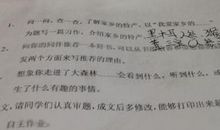 1. 问一问,查一查,了解家乡的特产,以“我爱家乡的
为题写一篇习作,介绍家乡的特产。
2. 向你的同伴推荐一本好书,可以从书
发两个方面来写推荐的理由。
想象你走进了大森林……会看到什么,听到什么,
生了什么有趣的事情。
文,请同学们认真审题,成文后多修改,能够打印出来
自主作业。